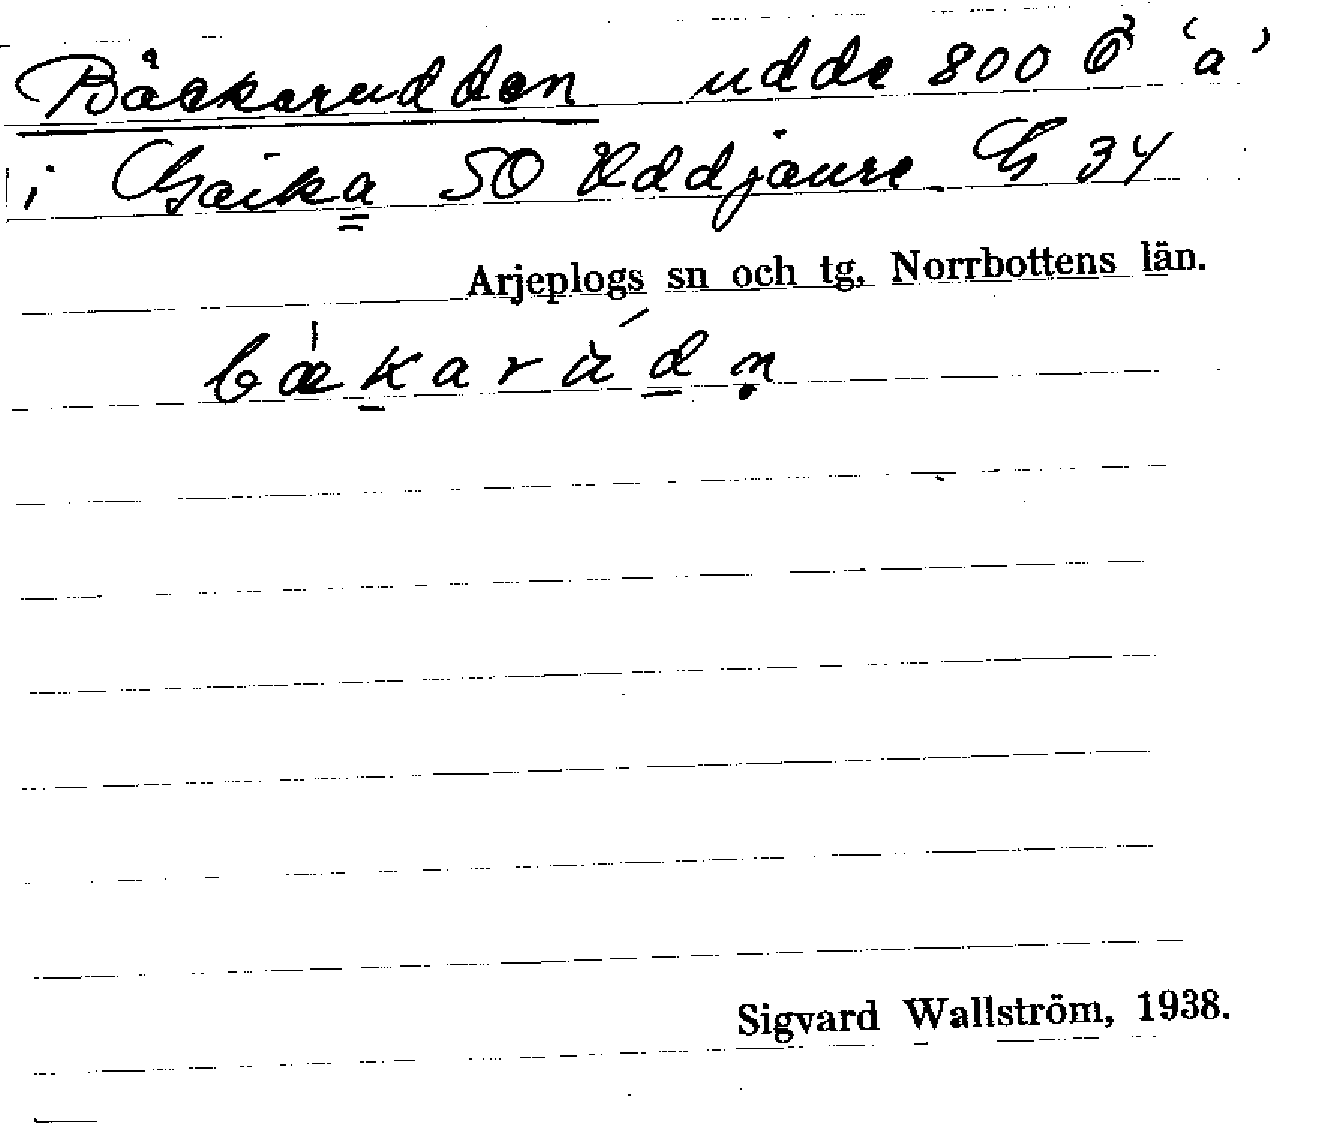 Bäckarudden udde 800 Ö 'a'
i Gaika SO Uddjaure G 34
Arjeplogs sn och tg, Norrbottens län.
bækarùdn
Sigvard Wallström, 1938.